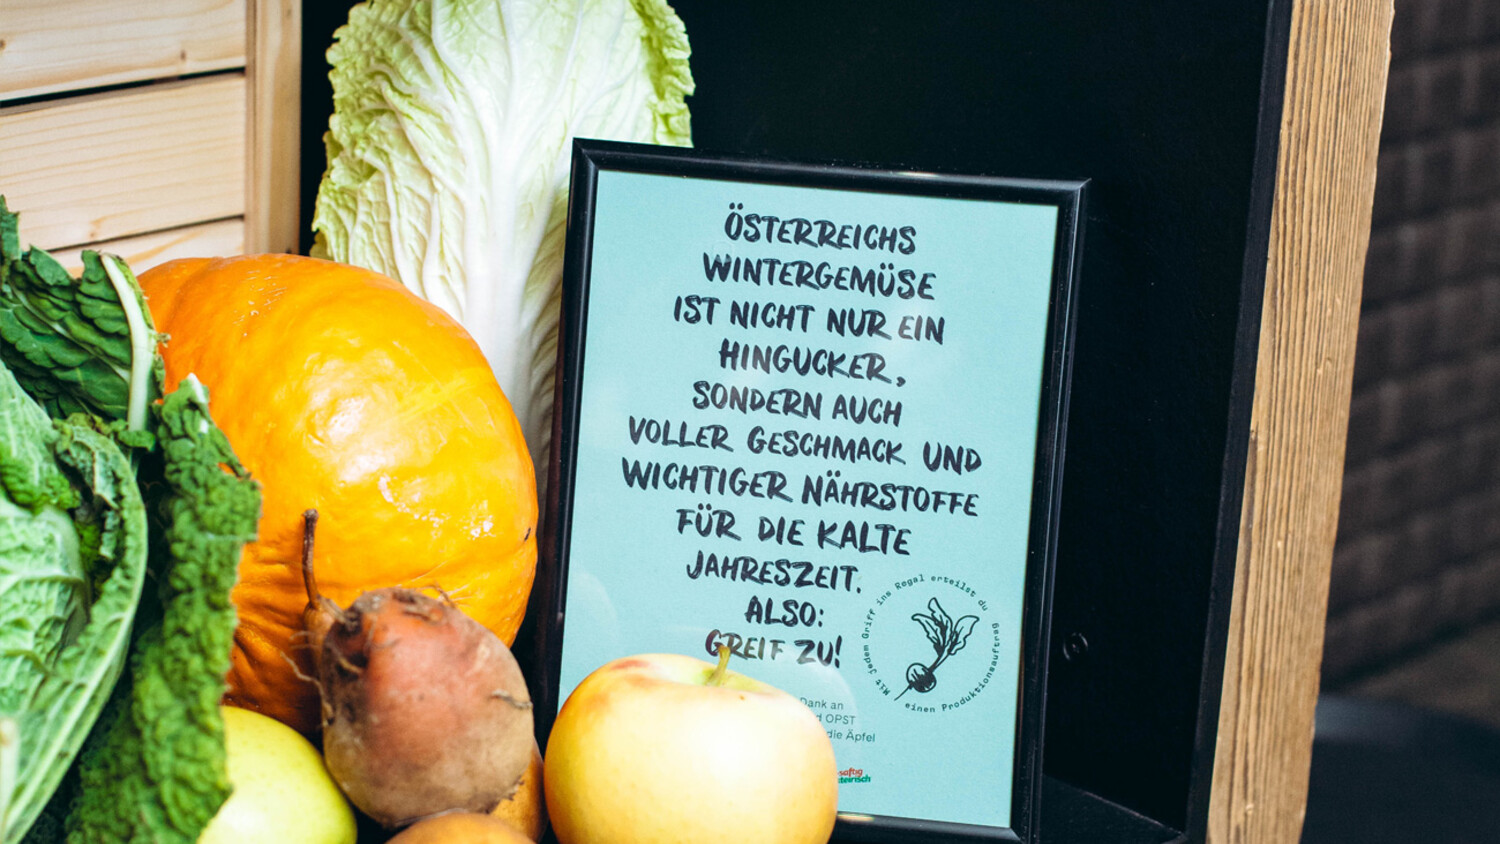 ÖSTERREICHS
WINTERGEMÜSE
IST NICHT NUR EIN
HINGUCKER,
SONDERN AUCH
VOLLER GESCHMACK UND
WICHTIGER NÄHRSTOFFE
FÜR DIE KALTE
JAHRESZEIT.
ALSO:
GREIF ZU!
Mit jedem Griff ins Regal erteilst du
einen Produktionsauftrag
Dank an
OPST
die Äpfel
saftig